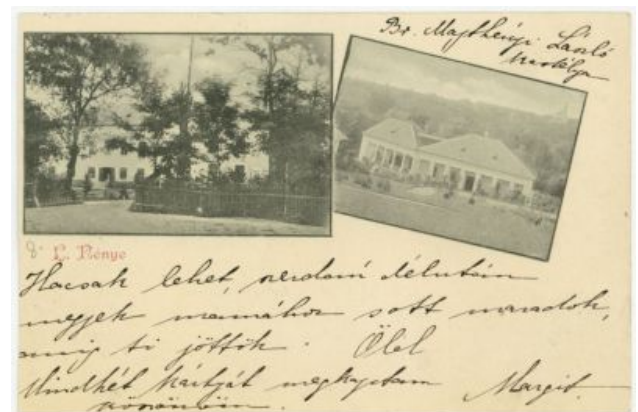 Br. Majthényi László
kastélya
L. Nénye
Hacsak lehet, szerdán délután
megyek mamához s ott maradok,
amig ti jöttök. Ölel
Mindkét kártyát megkaptam Margit.
köszönöm.